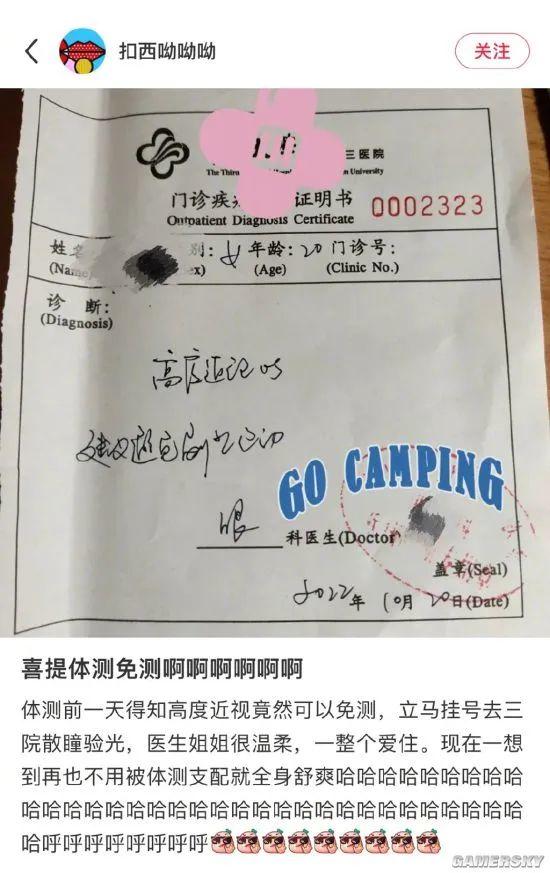 扣西呦呦呦
关注
三医院
The Thir
n University
门诊疾
证明书
Outpatient Diagnosis Certificate
0002323
姓名
别: 女 年龄: 20 门诊号:
(Name)
ex)
(Age)
(Clinic No.)
诊 断:
(Diagnosis)
高度近视 os
建议避免剧烈运动
GO CAMPING
眼 科医生(Doctor
盖章(Seal)
2022年 10月 20日(Date)
喜提体测免测啊啊啊啊啊啊啊
体测前一天得知高度近视竟然可以免测，立马挂号去三
院散瞳验光，医生姐姐很温柔，一整个爱住。现在一想
到再也不用被体测支配就全身舒爽哈哈哈哈哈哈哈哈哈
哈哈哈哈哈哈哈哈哈哈哈哈哈哈哈哈哈哈哈哈哈哈哈哈
哈呼呼呼呼呼呼呼呼
GAMERSKY